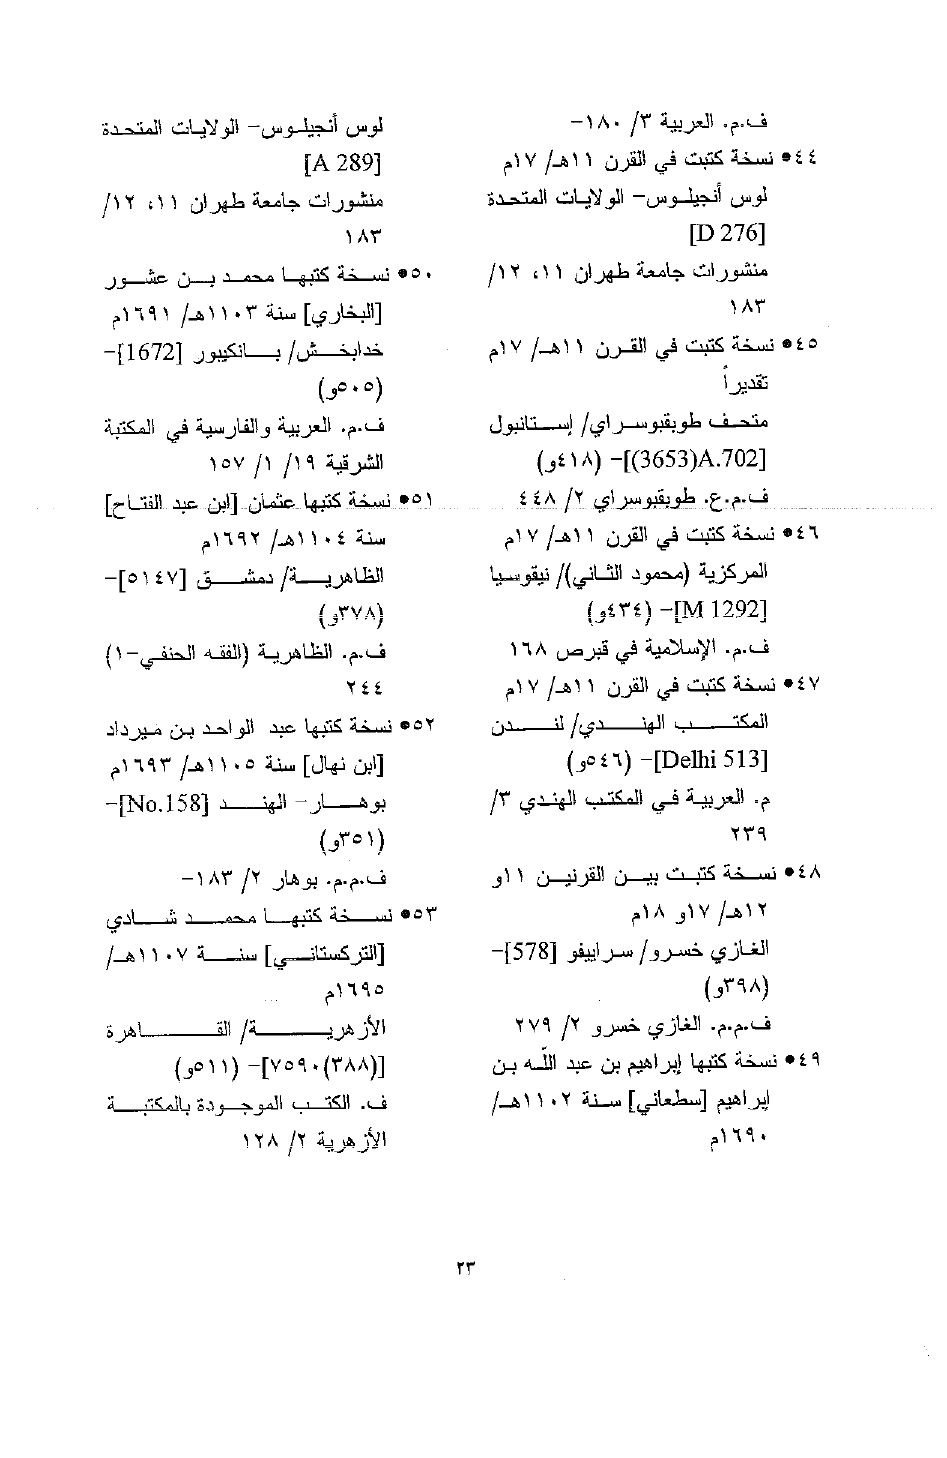 ف.م. العربية ٣/ ١٨٠-
٤٤• نسخة كتبت في القرن ١١هـ/ ١٧م
لوس أنجيلوس- الولايات المتحدة
[D 276]
منشورات جامعة طهران ١١، ١٢/
١٨٣
٤٥• نسخة كتبت في القرن ١١هـ/ ١٧م
تقديراً
متحف طوبقبوسراي/ إستانبول
[(3653)A.702]- (٤١٨و)
ف.م.ع. طوبقبوسراي ٢/ ٤٤٨
٤٦• نسخة كتبت في القرن ١١هـ/ ١٧م
المركزية (محمود الثاني)/ نيقوسيا
[M 1292]- (٤٣٤و)
ف.م. الإسلامية في قبرص ١٦٨
٤٧• نسخة كتبت في القرن ١١هـ/ ١٧م
المكتب الهندي/ لندن
[Delhi 513]- (٥٤٦و)
م. العربية في المكتب الهندي ٣/
٢٣٩
٤٨• نسخة كتبت بين القرنين ١١و
١٢هـ/ ١٧و ١٨م
الغازي خسرو/ سراييفو [578]-
(٣٩٨و)
ف.م.م. الغازي خسرو ٢/ ٢٧٩
٤٩• نسخة كتبها إبراهيم بن عبد الله بن
إبراهيم [سطعاني] سنة ١١٠٢هـ/
١٦٩٠م
لوس أنجيلوس- الولايات المتحدة
[A 289]
منشورات جامعة طهران ١١، ١٢/
١٨٣
٥٠• نسخة كتبها محمد بن عشور
[البخاري] سنة ١١٠٣هـ/ ١٦٩١م
خدابخش/ بانكيبور [1672]-
(٥٠٥و)
ف.م. العربية والفارسية في المكتبة
الشرقية ١٩/ ١/ ١٥٧
٥١• نسخة كتبها عثمان [ابن عبد الفتاح]
سنة ١١٠٤هـ/ ١٦٩٢م
الظاهرية/ دمشق [٥١٤٧]-
(٣٧٨و)
ف.م. الظاهرية (الفقه الحنفي-١)
٢٤٤
٥٢• نسخة كتبها عبد الواحد بن ميرداد
[ابن نهال] سنة ١١٠٥هـ/ ١٦٩٣م
بوهار- الهند [No.158]-
(٣٥١و)
ف.م.م. بوهار ٢/ ١٨٣-
٥٣• نسخة كتبها محمد شادي
[التركستاني] سنة ١١٠٧هـ/
١٦٩٥م
الأزهرية/ القاهرة
[(٣٨٨)٧٥٩٠]- (٥١١و)
ف. الكتب الموجودة بالمكتبة
الأزهرية ٢/ ١٢٨
٢٣